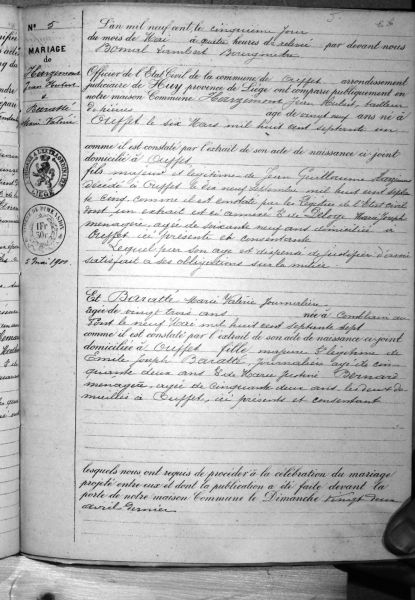 N° 5
MARIAGE
de
Hargemont
Jean Hubert
&
Baratté
Marie Valérie
5 mai 1900
L'an mil neuf cent, le cinquième jour
du mois de Mai à quatre heures de relevé par devant nous
Bomal Lambert Bourgmestre
Officier de l'Etat Civil de la commune de Ouffet arrondissement
judiciaire de Huy province de Liège ont comparu publiquement en
notre maison Commune Hargemont Jean Hubert, tailleur
de pierres âgé de vingt neuf ans né à
Ouffet le six Mars mil huit cent septante un
comme il est constaté par l'extrait de son acte de naissance ci-joint
domicilié à Ouffet
fils majeur et légitime de Jean Guillaume
décédé à Ouffet le dix neuf septembre mil huit cent septante
cinq, comme il est constaté par les Registres de l'Etat civil
dont un extrait est ci annexé & de Deloge Marie Joseph
ménagère, âgée de soixante neuf ans domiciliée à
Ouffet ici présente et consentante
Lequel par son âge est dispensé de justifier d'avoir
satisfait à ses obligations sur la milice
Et Baratté Marie Valérie Journalière
âgée de vingt trois ans née à Comblain au
Pont le neuf Mai mil huit cent septante sept
comme il est constaté par l'extrait de son acte de naissance ci-joint
domiciliée à Ouffet fille majeure & légitime de
Emile Joseph Baratté Journalier âgé de cin-
quante deux ans & de Marie Justine Bernard
ménagère, âgée de cinquante deux ans, les deux do-
miciliés à Ouffet, ici présents et consentant
lesquels nous ont requis de procéder à la célébration du mariage
projeté entre eux et dont la publication a été faite devant la
porte de notre maison Commune le Dimanche vingt deux
avril dernier